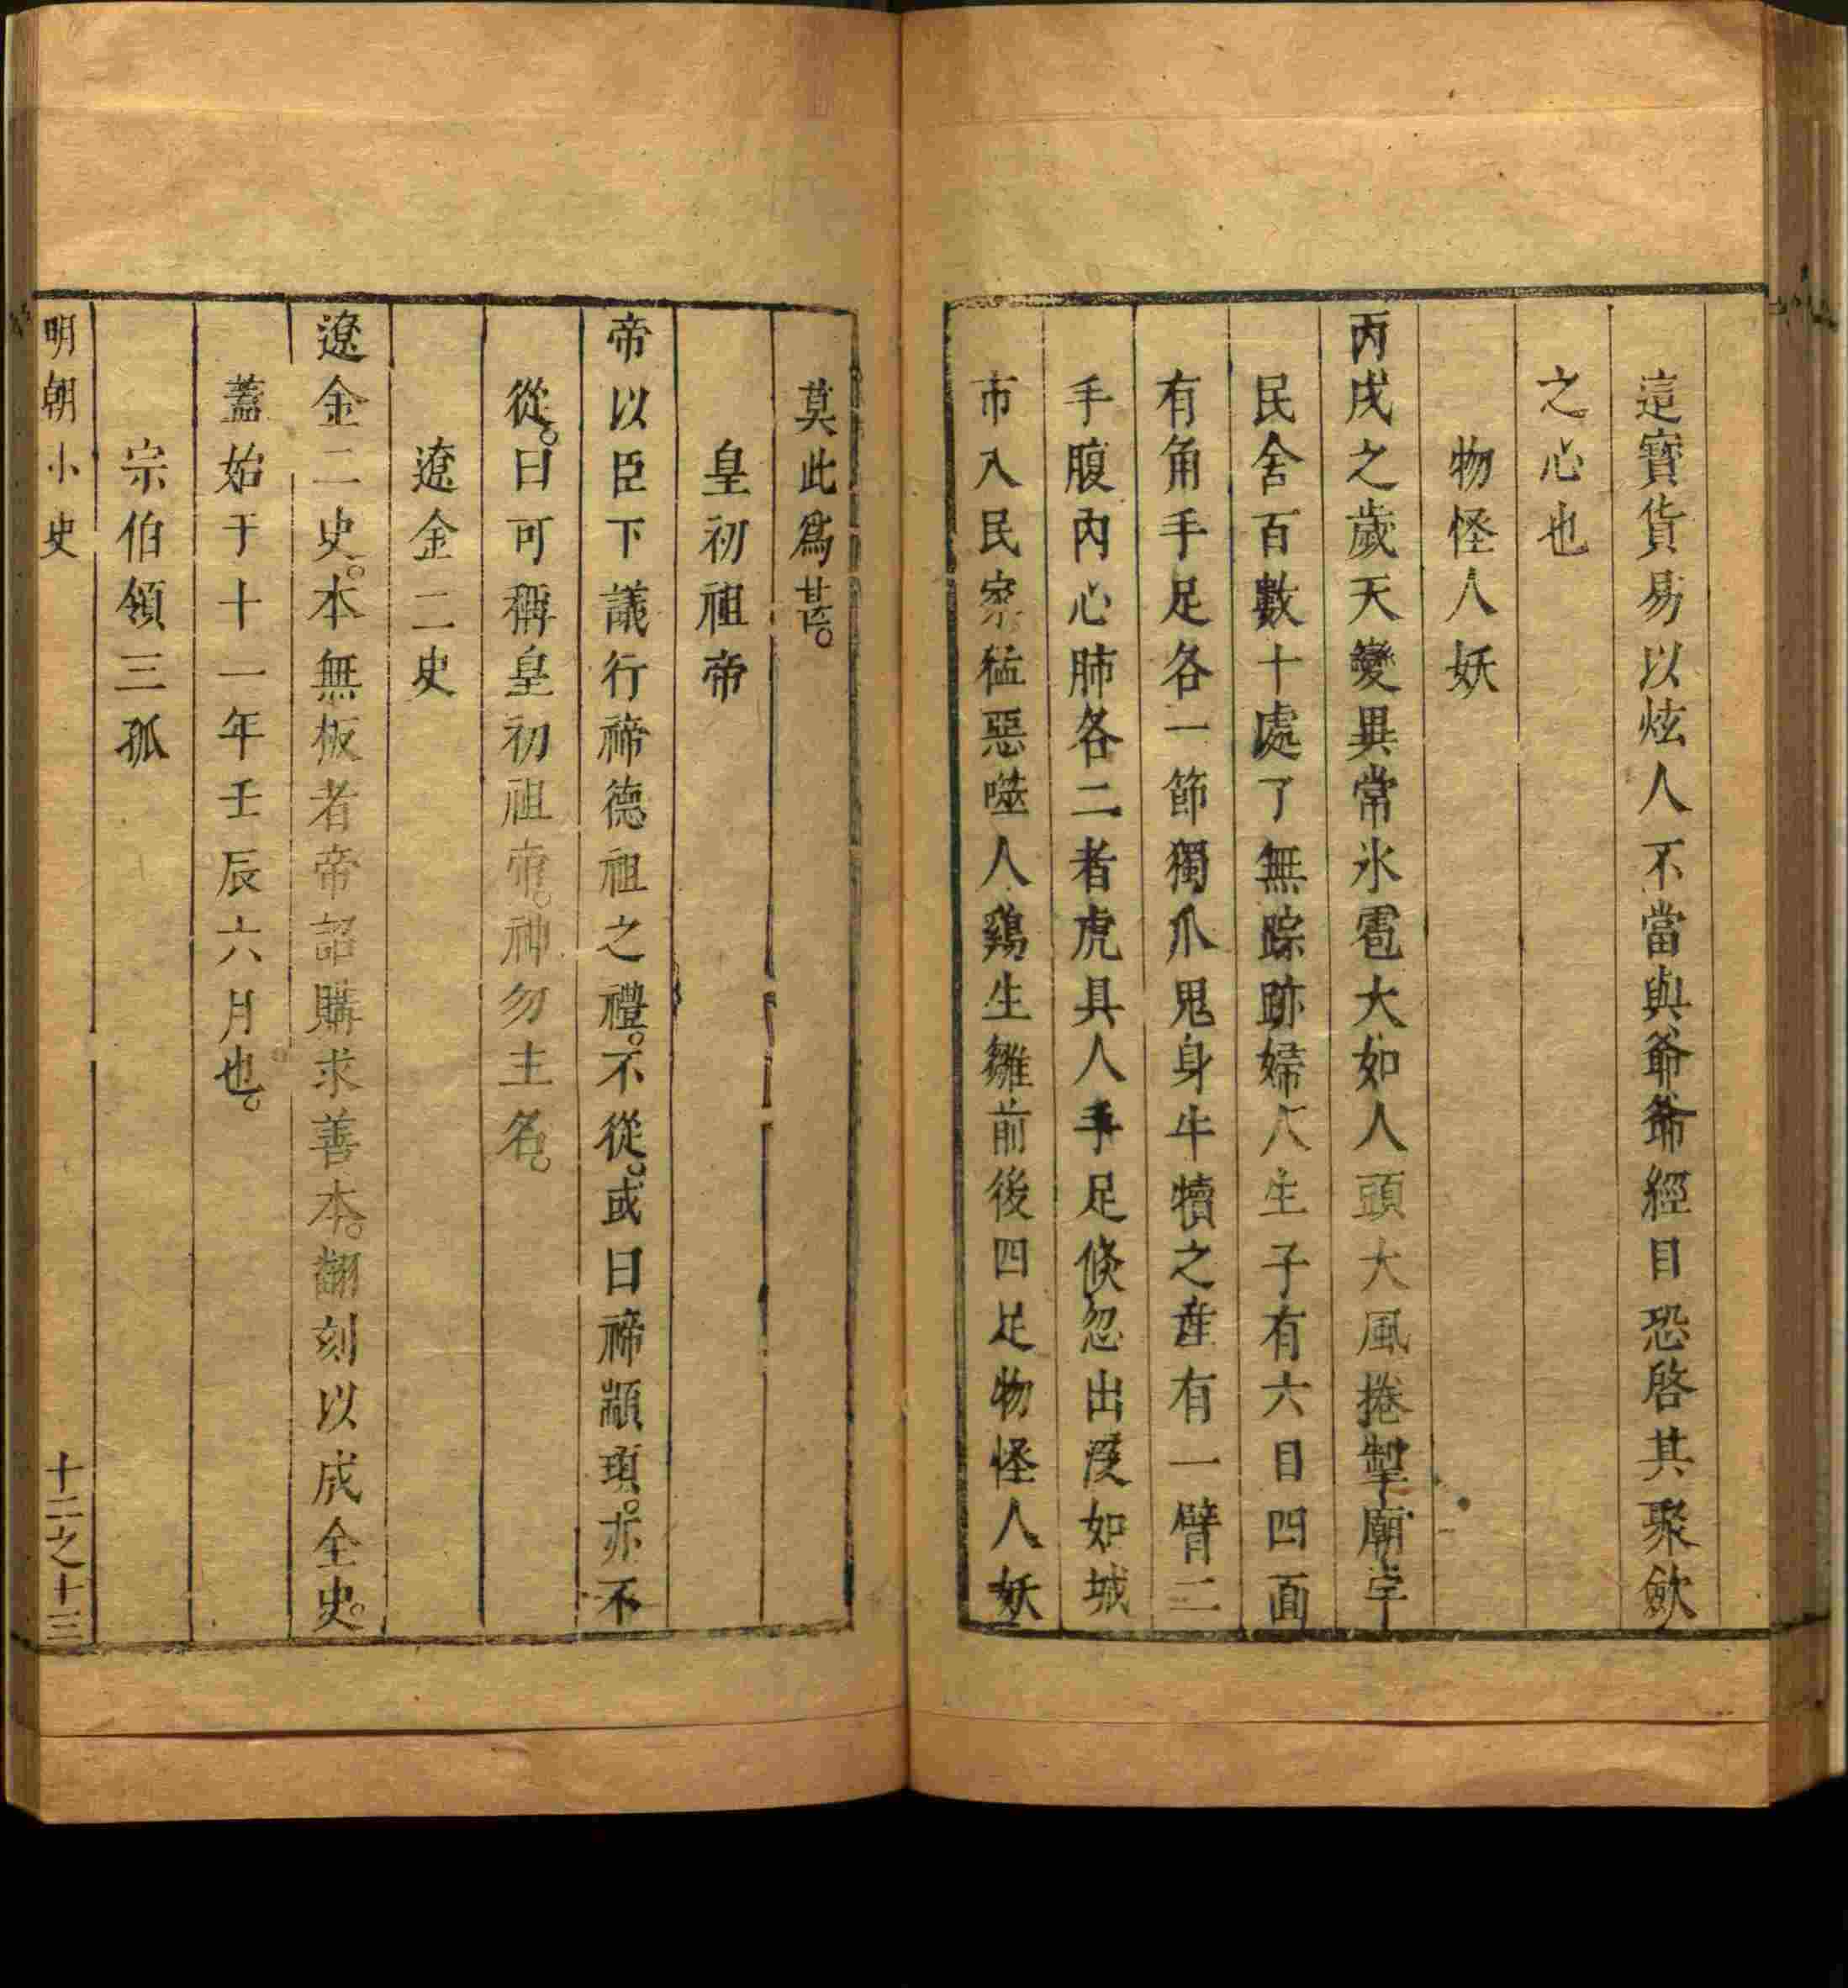 這寶貨易以炫人不當與爺爺經目恐啓其聚歛
之心也
物怪人妖
丙戌之歲天變異常氷雹大如人頭大風捲掣廟宇
民舍百數十處了無踪跡婦人生子有六目四面
有角手足各一節獨爪鬼身牛犢之產有一臂二
手腹內心肺各二者虎具人手足倐忽出没如城
市入民家猛惡噬人鷄生雛前後四足物怪人妖
莫此爲甚。
皇初祖帝
帝以臣下議行禘德祖之禮。不從。或曰禘顓頊。亦不
從。曰可稱皇初祖帝。神勿主名。
遼金二史
遼金二史。本無板者帝詔購求善本。翻刻以成全史。
蓋始于十一年壬辰六月也。
宗伯領三孤
明朝小史
十二之十三